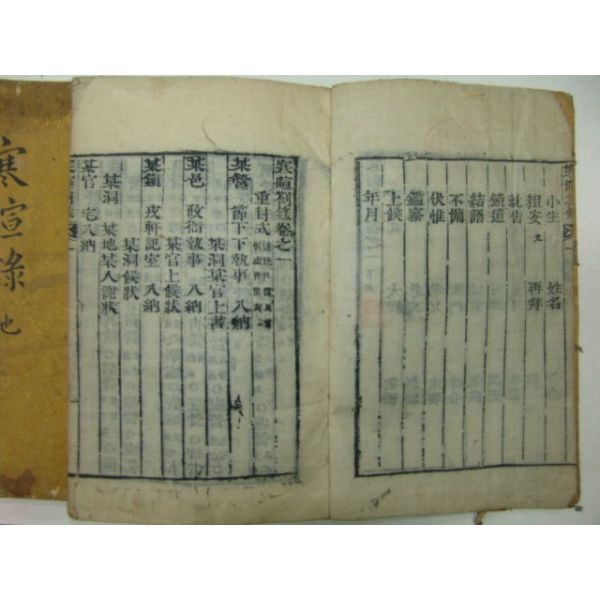 小生 姓名
粗安 九 再拜
就告
結語
不備
伏惟
鑑察
上候
年月
寒暄箚錄卷之一
重封式
某營 節下下執事 入納
某洞某官上書
某邑 政衙執事 入納
某官上候狀
某鎭 戎軒記室 入納
某洞候狀
某洞 某地某人謝狀
某官 宅入納
寒宣錄